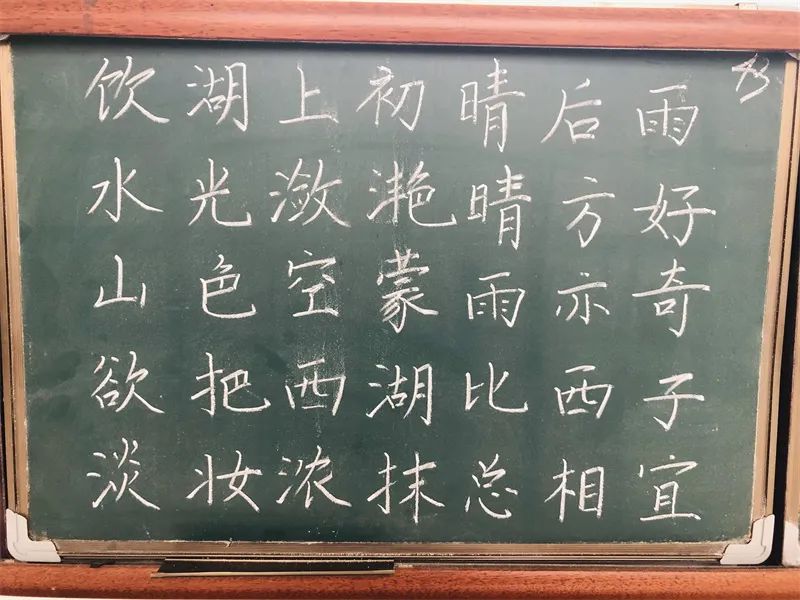 饮湖上初晴后雨
水光潋滟晴方好
山色空蒙雨亦奇
欲把西湖比西子
淡妆浓抹总相宜